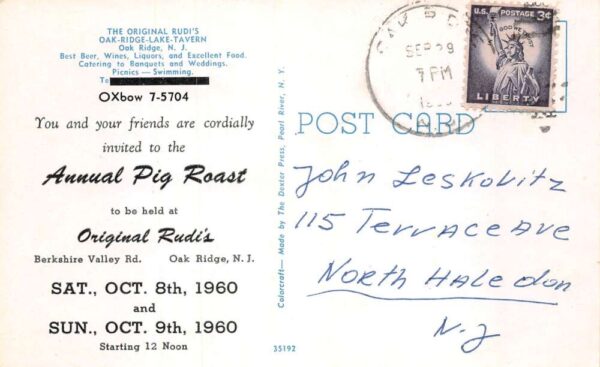 THE ORIGINAL RUDI'S
OAK-RIDGE-LAKE-TAVERN
Oak Ridge, N. J.
Best Beer, Wines, Liquors, and Excellent Food.
Catering to Banquets and Weddings.
Picnics — Swimming.
Te
OXbow 7-5704
You and your friends are cordially
invited to the
Annual Pig Roast
to be held at
Original Rudi's
Berkshire Valley Rd. Oak Ridge, N. J.
SAT., OCT. 8th, 1960
and
SUN., OCT. 9th, 1960
Starting 12 Noon
Colorcraft— Made by The Dexter Press, Pearl River, N. Y.
35192
SEP 28
7 PM
U.S. POSTAGE 3¢
IN GOD WE TRUST
LIBERTY
POST CARD
John Leskovitz
115 Terrace Ave
North Haledon
N. J